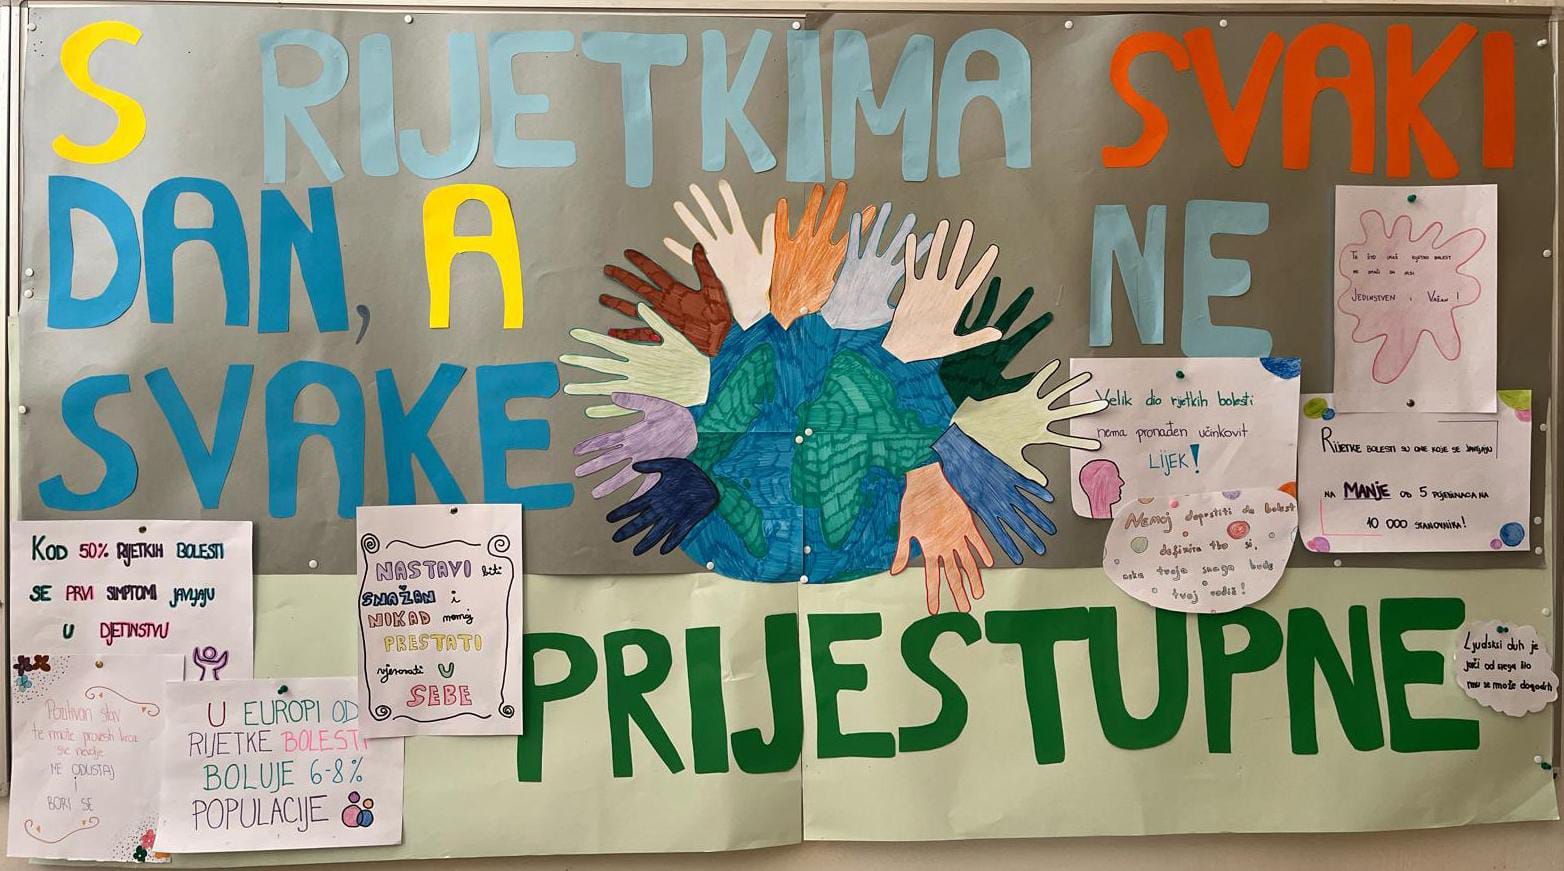 S RIJETKIMA SVAKI
DAN, A NE
SVAKE
PRIJESTUPNE
To što imaš rijetku bolest
ne znači da nisi
JEDINSTVEN i Važan!
Velik dio rijetkih bolesti
nema pronađen učinkovit
LIJEK!
RIJETKE BOLESTI SU ONE KOJE SE JAVLJAJU
NA MANJE OD 5 POJEDINACA NA
10 000 STANOVNIKA!
Nemoj dopustiti da bolest
definira tko si,
neka tvoja snaga bude
tvoj vodič!
Ljudski duh je
jači od svega što
mu se može dogoditi
KOD 50% RIJETKIH BOLESTI
SE PRVI SIMPTOMI JAVLJAJU
U DJETINSTVU
NASTAVI biti
SNAŽAN i
NIKAD nemoj
PRESTATI
vjerovati U
SEBE
Pozitivan stav
te može provesti kroz
sve nevolje
NE ODUSTAJ
i
BORI SE
U EUROPI OD
RIJETKE BOLESTI
BOLUJE 6-8%
POPULACIJE